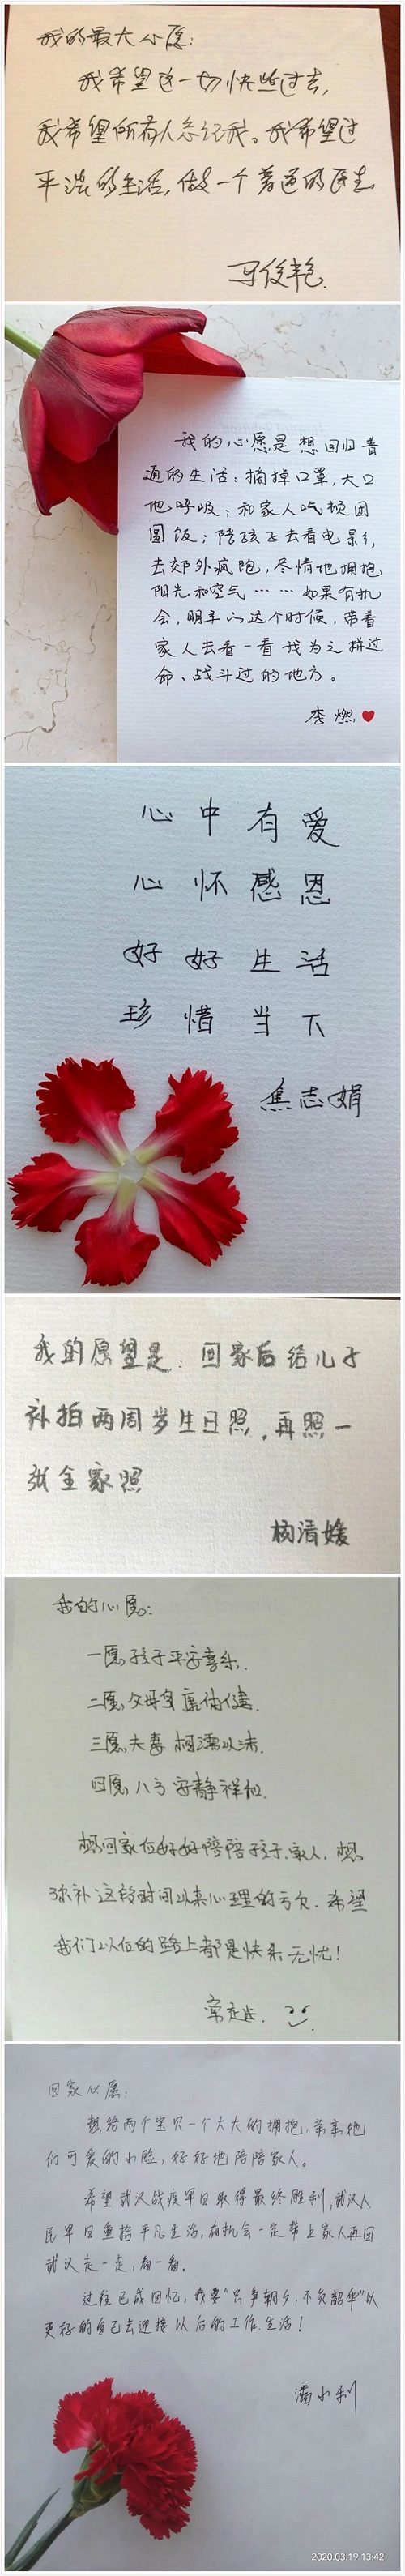 我的最大心愿：
我希望这一切快些过去，
我希望所有人忘记我。我希望过
平淡的生活，做一个普通的医生。
马俊艳.
我的心愿是想回归普
通的生活：摘掉口罩，大口
地呼吸；和家人吃顿团
圆饭；陪孩子去看电影，
去郊外疯跑，尽情地拥抱
阳光和空气……如果有机
会，明年的这个时候，带着
家人去看一看我为之拼过
命、战斗过的地方。
李燃
心中有爱
心怀感恩
好好生活
珍惜当下
焦志娟
我的愿望是：回家后给儿子
补拍两周岁生日照，再照一
张全家照
杨清媛
我的心愿：
一愿孩子平安喜乐.
二愿父母身康体健.
三愿夫妻相濡以沫.
四愿八方安静祥和.
想回家后好好陪陪孩子、家人，想
弥补这段时间以来心理的亏欠. 希望
我们以后的路上都是快乐无忧！
常
回家心愿：
想给两个宝贝一个大大的拥抱，亲亲他
们可爱的小脸，好好地陪陪家人。
希望武汉战疫早日取得最终胜利，武汉人
民早日重拾平凡生活，有机会一定带上家人再回
武汉走一走，看一看。
过往已成回忆，我要“只争朝夕，不负韶华”以
更好的自己去迎接以后的工作、生活！
潘小利
2020.03.19 13:42